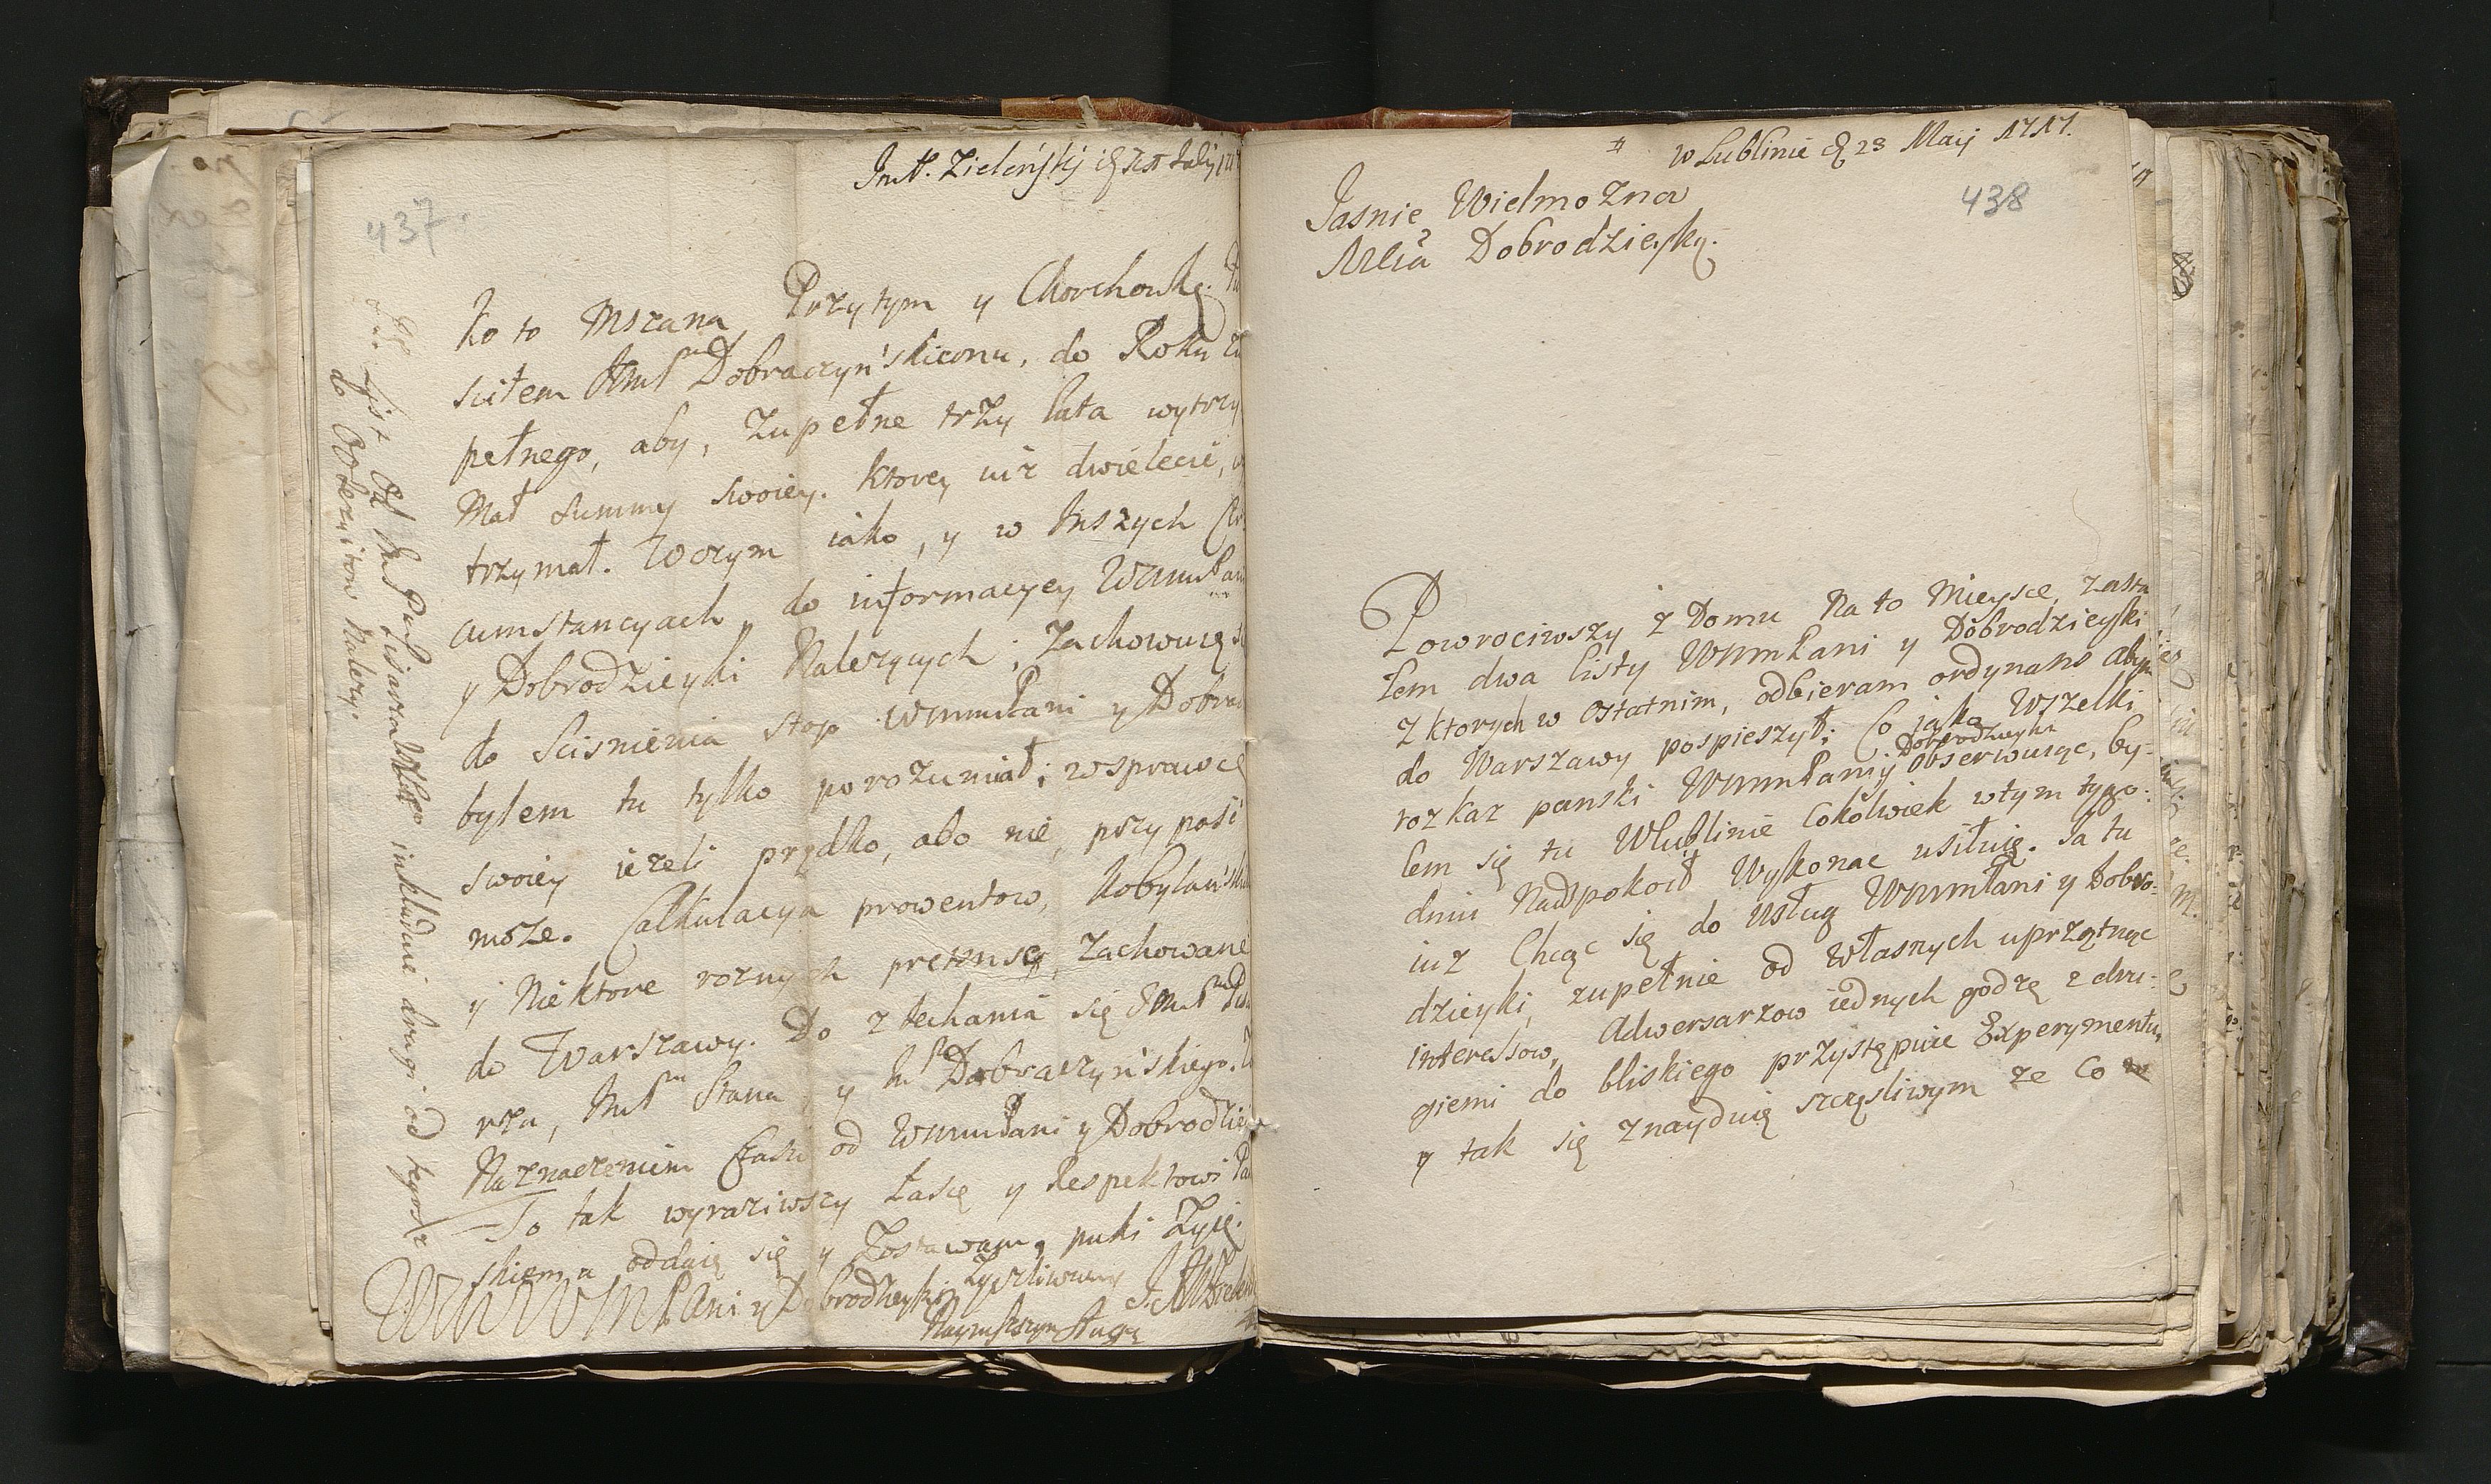 437.
Ko to Mszana, Przytym y Chorchoską.
sciłem Dobraczyńskiemu, do Roku
pełnego, aby, Zupełne trzy Lata wytrzy
Mał Summy swoiey. Ktorey iuz dwielecie,
trzymał. Woczym iako, y w Inszych
cumstancyach, do informacyey WmmPani
y Dobrodzieyki Nalezących, Zachowuię
do Scisnienia stop WmmPani y Dobro
byłem tu tylko porozumiał, w sprawcę
swoiey iezeli prędko, abo nie, przypaść
może. Calkulacya prowentow, Kobylańsk
y Niektore roznych pretensę, Zachowane
do Warszawy. Do ziechania się
rza, y Dobraczyńskiego.
Naznaczeniem Czasu od WmmPani y Dobrodzie
To tak wyraziwszy Łasce y Respektowi Pa
skiemu oddaię się y Zostawam, puki Żyię.
WmmPani y Dobrodzieyki Zyczliwym
Nayniższym Sługą
List Od inkludui drugi od tegoz
do Nalezy.
w Lublinie d 23 Maij 1717.
438
Jasnie Wielmozna
Mcia Dobrodzieyko.
Powrociwszy z Domu Na to Mieysce, zasta
łem dwa listy WmmPani y Dobrodzieyki
z ktorych w ostatnim, odbieram ordynans abym
do Warszawy pospieszył; Co jako Wszelki
Dobrodzieyki
rozkaz panski WmmPaniy obserwuiąc, by-
lem się tu Wlublinie Cokolwiek wtym tygo-
dniu Nadspokoił Wykonac usiłuię. Ja tu
iuz Chcąc się do Usług WmmPani y Dobro-
dzieyki, zupełnie od Własnych uprzątnąc
interessow, Adwersarzow iednych godzę z dru-
giemi do bliskiego przystępuie Experymentu,
y tak się znayduię szczęsliwym ze Co